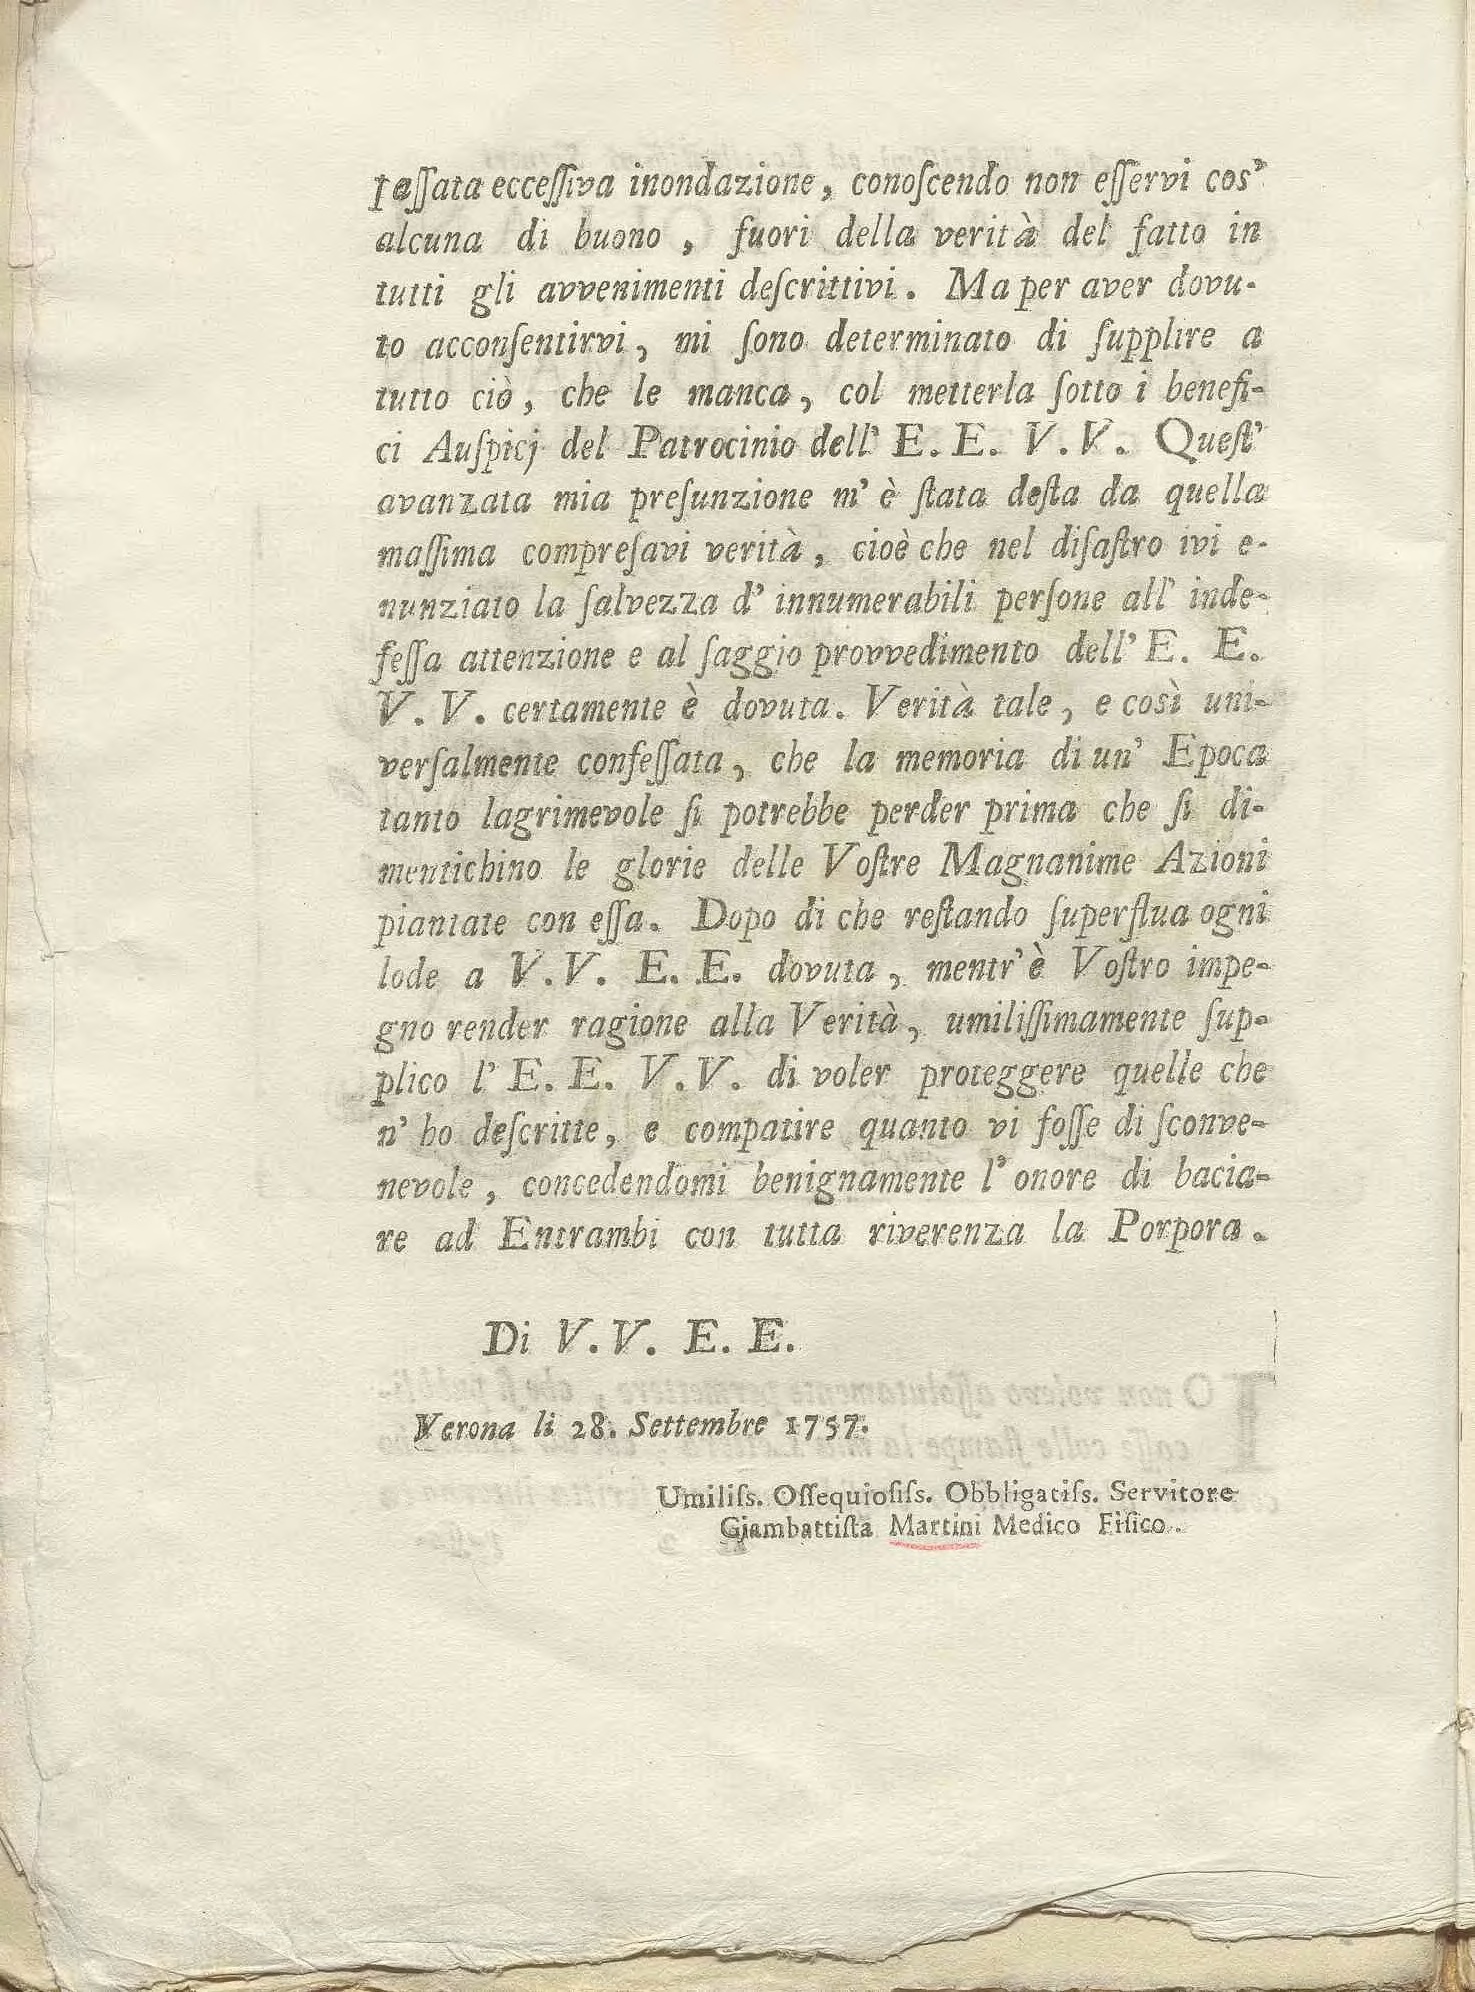 passata eccessiva inondazione, conoscendo non esservi cos'
alcuna di buono, fuori della verità del fatto in
tutti gli avvenimenti descrittivi. Ma per aver dovu-
to acconsentirvi, mi sono determinato di supplire a
tutto ciò, che le manca, col metterla sotto i benefi-
ci Auspicj del Patrocinio dell' E. E. V. V. Quest'
avanzata mia presunzione m' è stata desta da quella
massima compresavi verità, cioè che nel disastro ivi e-
nunziato la salvezza d' innumerabili persone all' inde-
fessa attenzione e al saggio provvedimento dell' E. E.
V. V. certamente è dovuta. Verità tale, e così uni-
versalmente confessata, che la memoria di un' Epoca
tanto lagrimevole si potrebbe perder prima che si di-
mentichino le glorie delle Vostre Magnanime Azioni
piantate con essa. Dopo di che restando superflua ogni
lode a V. V. E. E. dovuta, mentr' è Vostro impe-
gno render ragione alla Verità, umilissimamente sup-
plico l' E. E. V. V. di voler proteggere quelle che
n' ho descritte, e compatire quanto vi fosse di sconve-
nevole, concedendomi benignamente l' onore di bacia-
re ad Entrambi con tutta riverenza la Porpora.
Di V. V. E. E.
Verona li 28. Settembre 1757.
Umiliss. Ossequiosiss. Obbligatiss. Servitore
Giambattista Martini Medico Fisico.